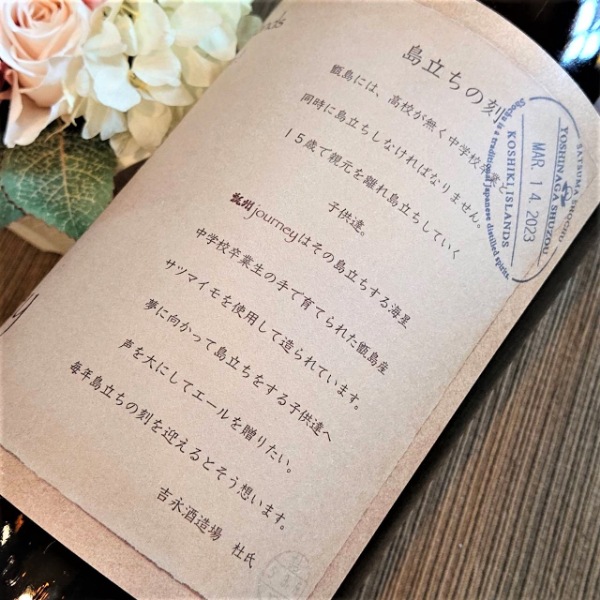 島立ちの刻
甑島には、高校が無く中学校卒業と
同時に島立ちしなければなりません。
15歳で親元を離れ島立ちしていく
子供達。
甑州journeyはその島立ちする海星
中学校卒業生の手で育てられた甑島産
サツマイモを使用して造られています。
夢に向かって島立ちをする子供達へ
声を大にしてエールを贈りたい。
毎年島立ちの刻を迎えるとそう想います。
吉永酒造場 杜氏
SATSUMA SHOCHU
YOSHINAGA SHUZOU
MAR. 14. 2023
KOSHIKI.ISLANDS
Shochu is a traditional japanese distilled spirits